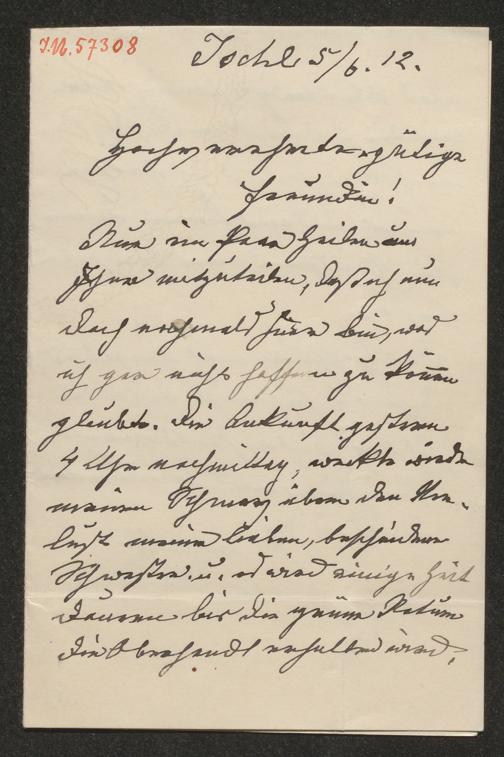 I.N. 57308
Ischl 5/6. 12.
Hochverehrte gütige
Freundin!
Nur ein paar Zeilen um
Ihnen mitzuteilen, daß ich nun
doch nochmals hier bin, was
ich gar nicht hoffen zu können
glaubte. Die Ankunft gestern
4 Uhr nachmittag, weckte wieder
meinen Schmerz über den Ver-
lust meiner lieben, bescheidenen
Schwester u. es wird einige Zeit
dauern bis die grüne Natur
die Oberhand erhalten wird,